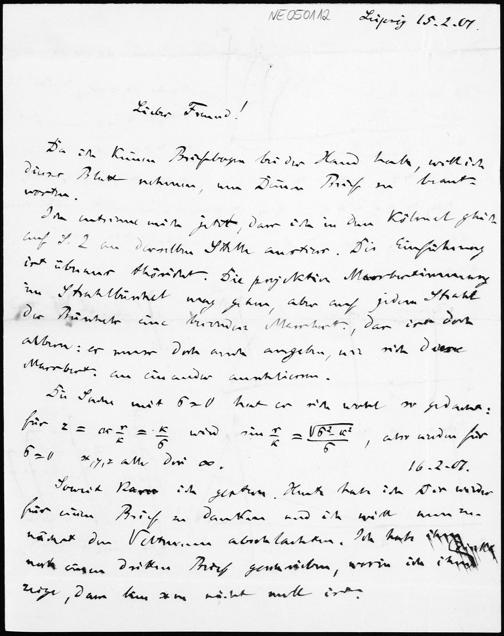 NE050112
Leipzig 15.2.07.
Lieber Freund!
Da ich keinen Briefbogen bei der Hand habe, will ich
dieses Blatt nehmen, um Deinen Brief zu beant-
worten.
Ich entsinne mich jetzt, dass ich in dem gleich
auf S. 2 an derselben Stelle anstiess. Die Einführung
ist überaus thöricht. Die projektive Maassbestimmung
im Strahlbündel mag gehen, aber auf jedem Strahl
des Bündels eine besondere Maassbest., das ist doch
albern: er muss doch auch angeben, wie sich diese
Maassbest. an einander anschliessen.
Die Sache mit σ=0 hat er sich wohl so gedacht:
für z = ∞ = wird sin = , also werden für
σ=0 x,y,z alle drei ∞.
16.2.07.
Soweit kam ich gestern. Heute habe ich Dir wieder
für einen Brief zu danken und ich will nun zu-
nächst den abschlachten. Ich habe ihm
noch einen dritten Brief geschrieben, worin ich ihm
zeige, dass sein nicht null ist.